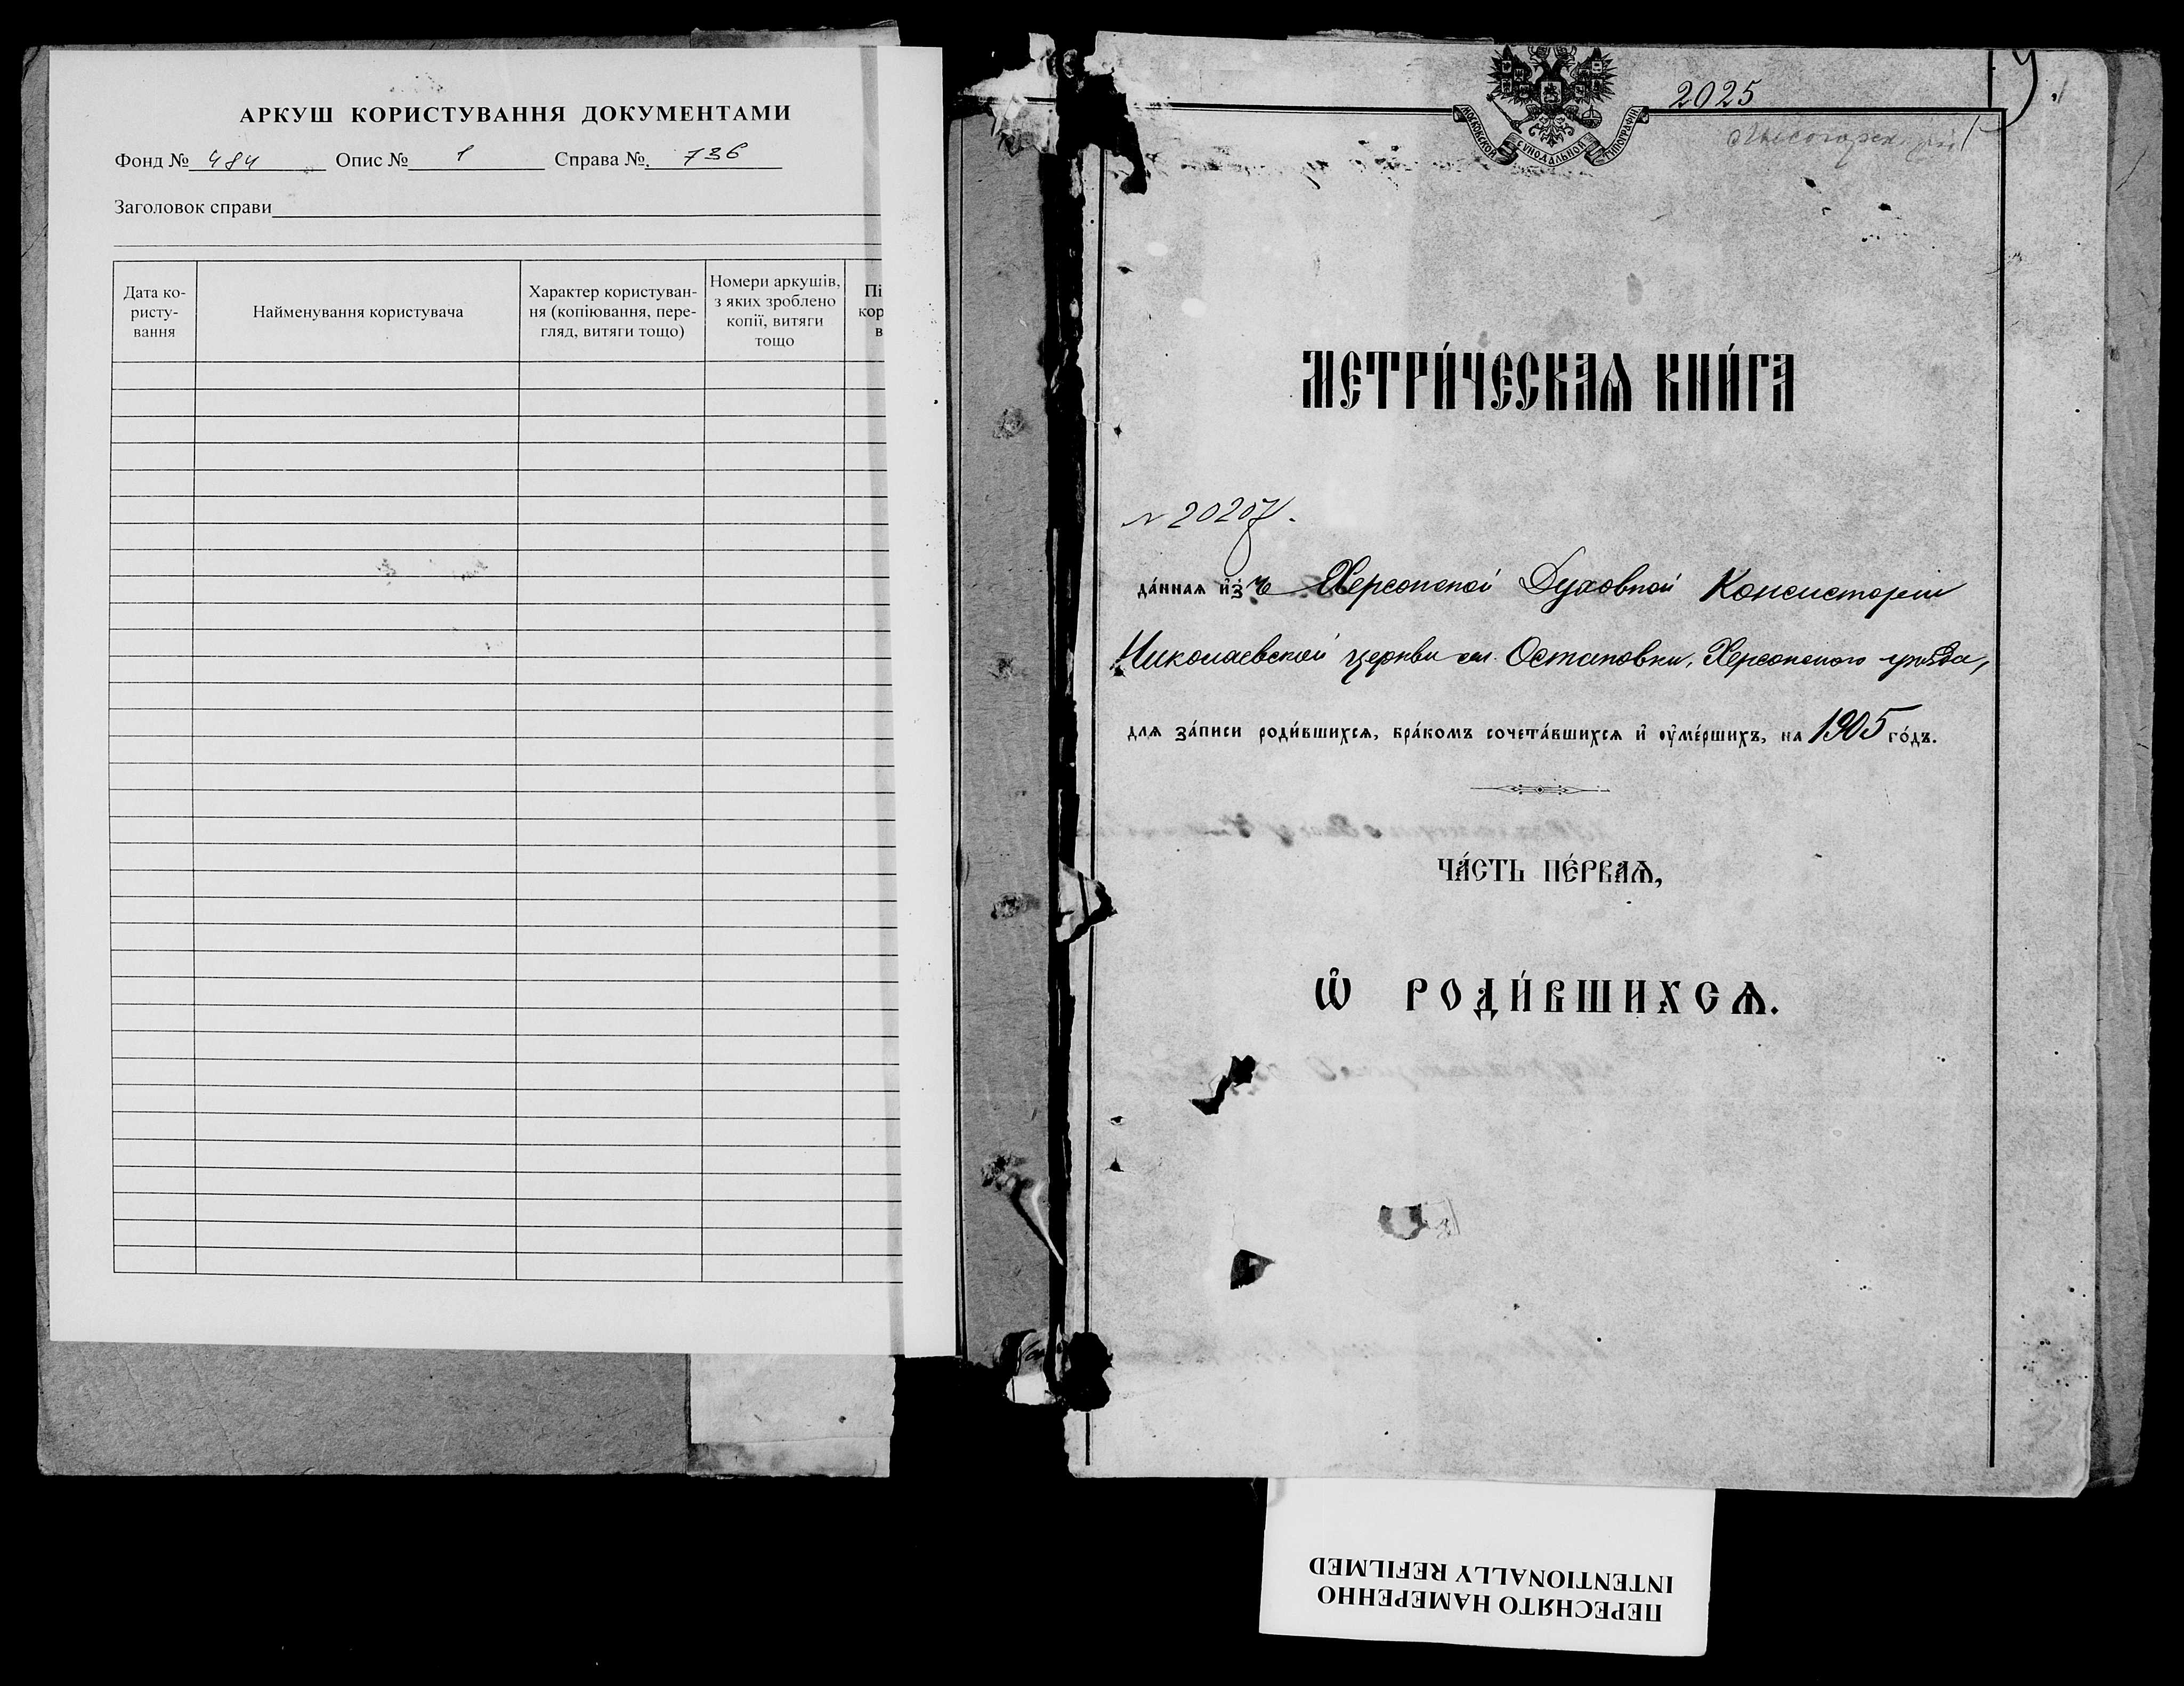 АРКУШ КОРИСТУВАННЯ ДОКУМЕНТАМИ
Фонд № 484 Опис № 1 Справа № 736
Заголовок справи
Дата ко-
ристу-
вання
Найменування користувача
Характер користуван-
ня (копіювання, пере-
гляд, витяги тощо)
Номери аркушів,
з яких зроблено
копії, витяги
тощо
Пі
кор
в
2025
МОСКОВСКОЙ СѴНОДАЛЬНОЙ ТИПОГРАФІИ
МЕТРИ́ЧЕСКАѦ КНИ́ГА
№ 20207.
да́нная и҆з ъ Херсонской Духовной Консисторіи
Николаевской церкви сел. Остановки, Херсонского уѣзда,
для за́писи роди́вшихся, бра́комъ сочета́вшихся и҆ ᲂу҆ме́ршихъ, на 1905 го́дъ.
ЧА́СТЬ ПЕ́РВАѦ,
Ѡ҆ РОДИ́ВШИХСѦ.
ПЕРЕСНЯТО НАМЕРЕННО
INTENTIONALLY REFILMED